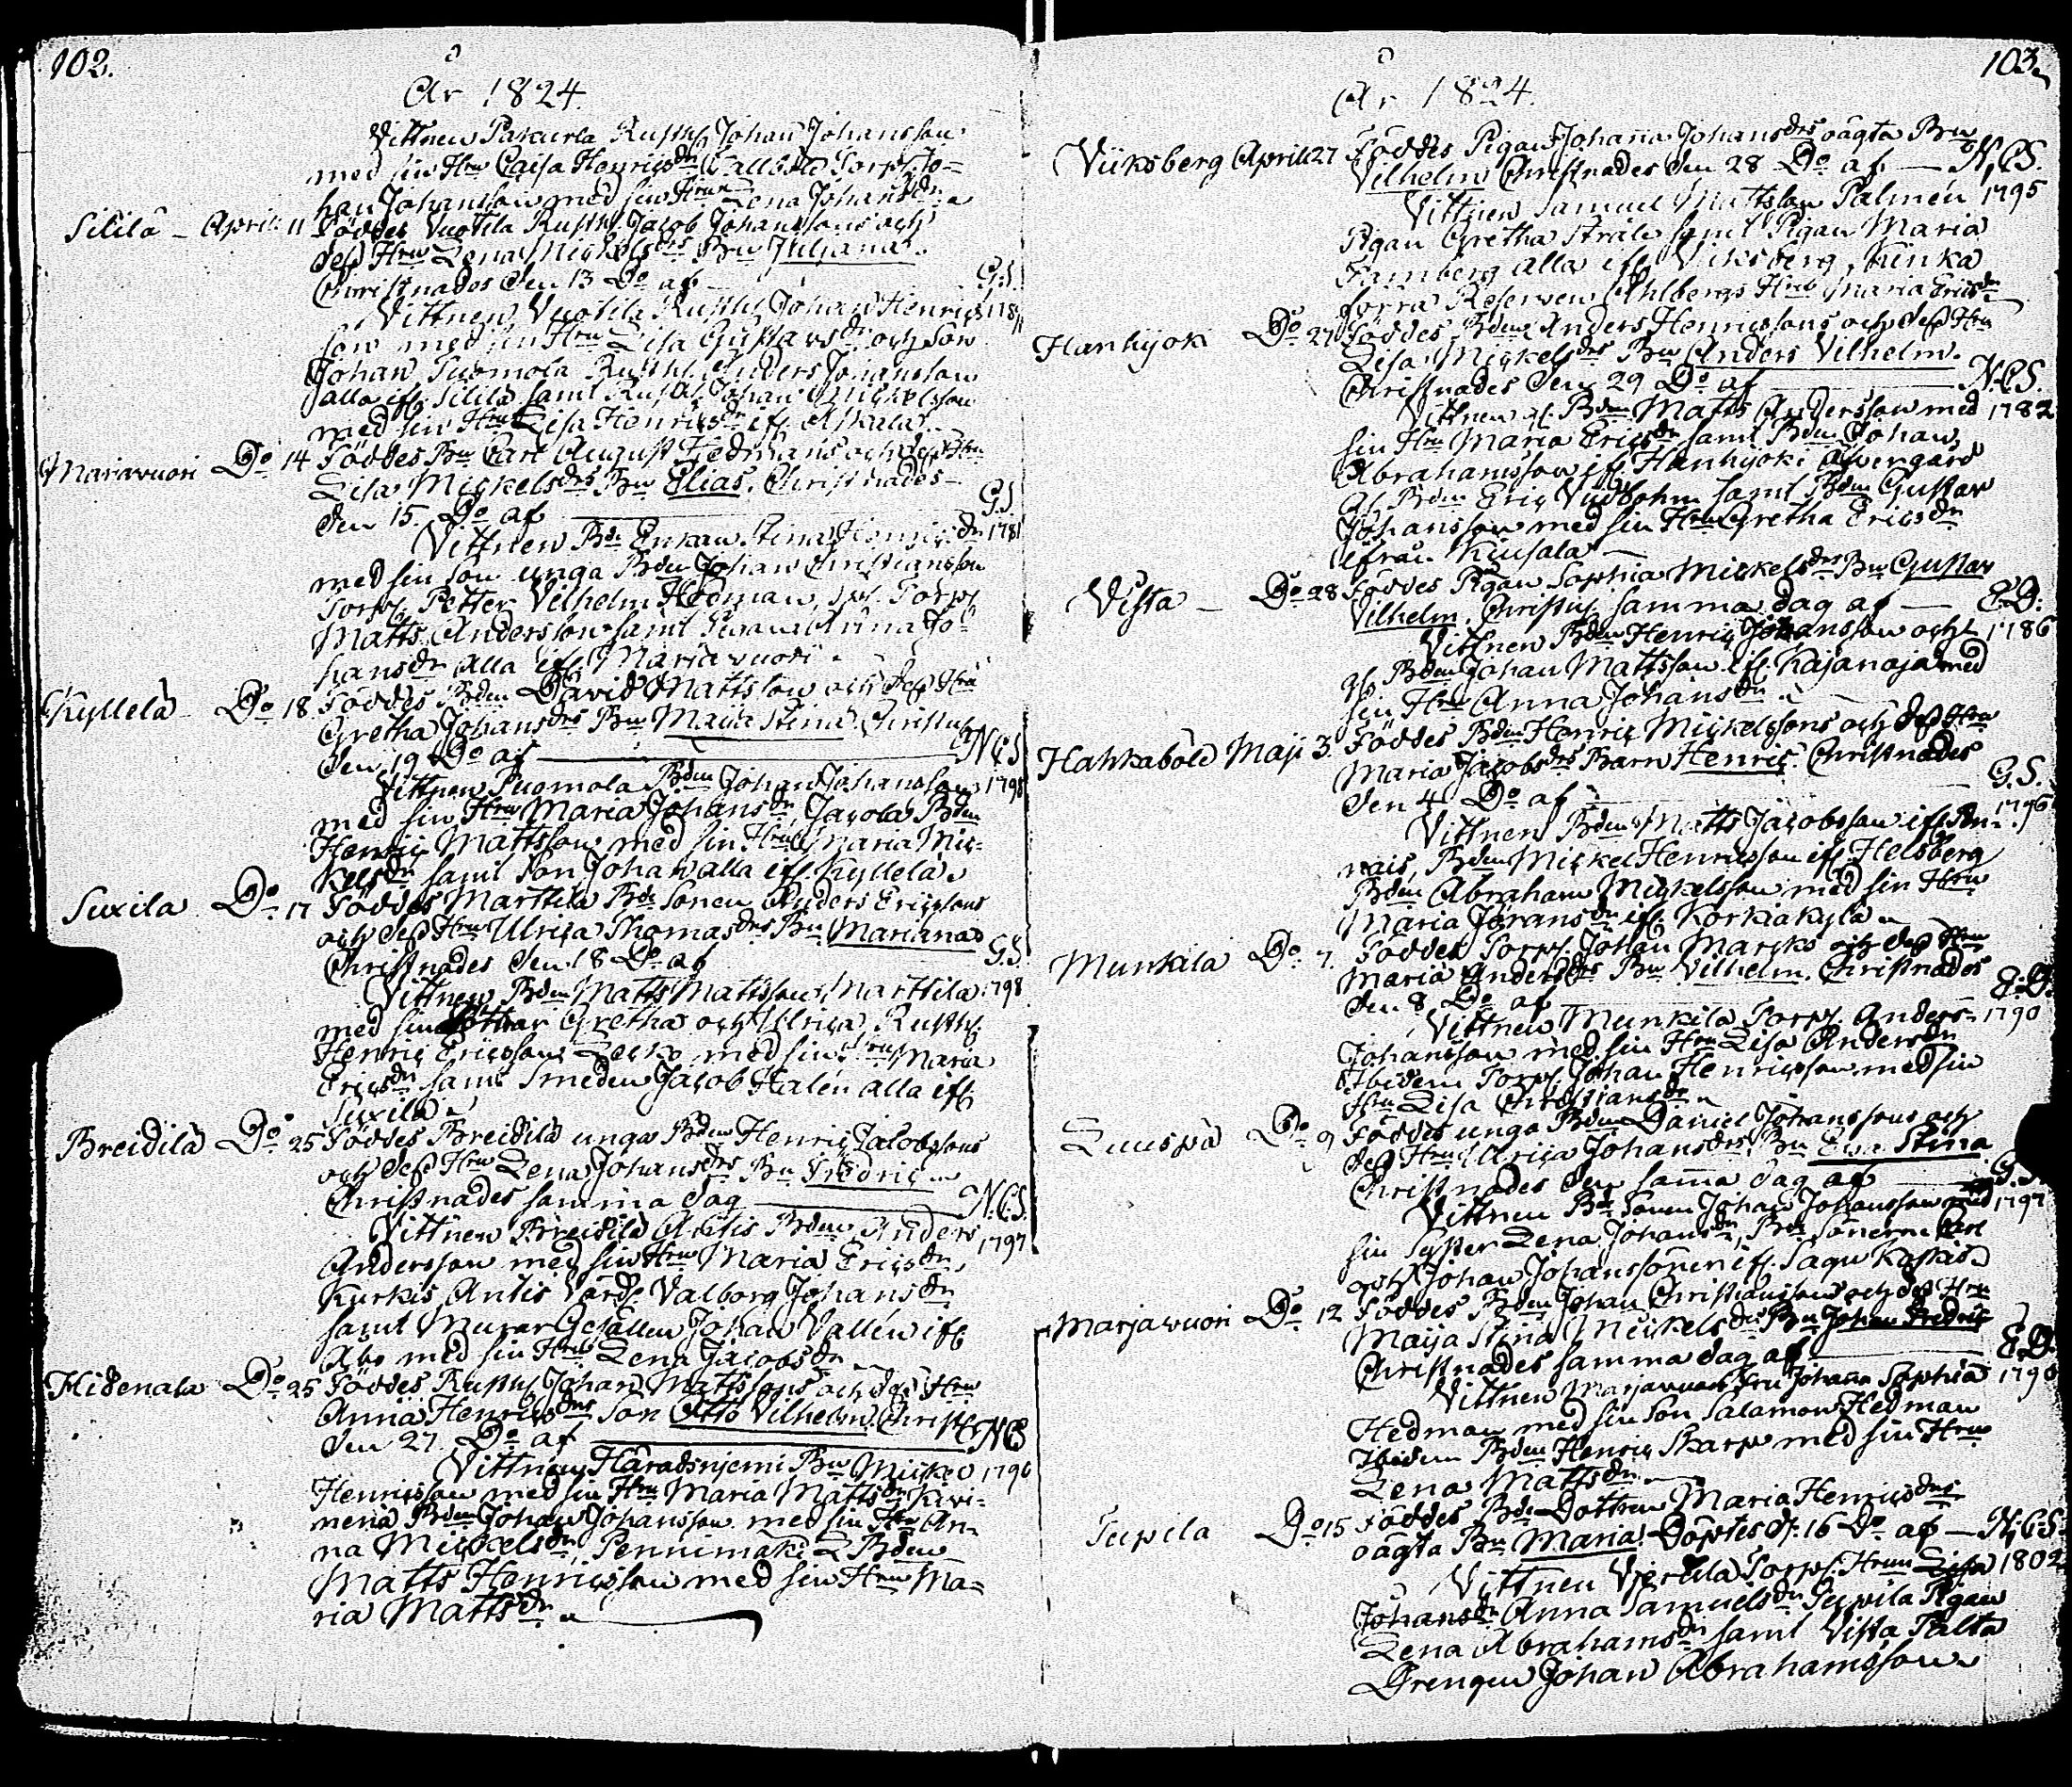 102.
År 1824.
Vittnen Pakurla Rusth. Johan Johansson
med sin Hru Caisa Henricsdr, Torp. Jo-
han Johansson med sin Hru Lena Johansdr
Sililä - April 11 Föddes Vuotila Rusth. Jacob Johanssons och
dess Hru Lena Mickelsdrs Bn Juliana.
Christnades den 13 Do af G.S.
Vittnen Vuotila Rusth. Johan Henrics-
son med sin Hru Lisa Gustavsdr och Son
Johan Tuomola Rusth. Anders Johansson
alla ifr. Sililä samt Rusth. Johan Mickelsson
med sin Hru Lisa Henricsdr ifr.
Mariavuori Do 14 Föddes Bn Carl August Hedmans och dess Hru
Lisa Mickelsdrs Bn Elias. Christnades
den 15. Do af G.S.
Vittnen Bde Enkan Stina Henricsdr 1781
med sin Son unga Bden Johan Christiansson
Torp. Petter Vilhelm Hedman, Torp.
Matts Andersson samt Pigan Anna Jo-
hansdr alla ifr. Mariavuori
Kyllelä Do 18 Föddes Bden David Mattsson och dess Hru
Gretha Johansdrs Bn Maija Stina Christn.
den 19 Do af N.C.S.
Vittnen Puomola Bden Johan Johansson 1798
med sin Hru Maria Johansdr, Jacola Bden
Henric Mattsson med sin Hru Maria Mic-
kelsdr samt Son Johan alla ifr. Kyllelä
Suxila Do 17 Föddes Marttila Bde Sonen Anders Ericssons
och dess Hru Ulrica Thomasdrs Bn Mariana
Christnades den 18 Do af G.S.
Vittnen Bden Matts Mattsson Marttila 1798
med sina Döttrar Gretha och Ulrica, Rusth.
Henric Ericsson med sin Hru Maria
Ericsdr samt Smeden Jacob Halén alla ifr.
Suxila
Breidilä Do 25 Föddes Breidilä unga Bden Henric Jacobssons
och dess Hru Lena Johansdrs Bn Fredric
Christnades samma dag N.C.S.
Vittnen Breidilä Antis Bden Anders 1797
Andersson med sin Hru Maria Ericsdr,
Kurkis Antis Värd. Valborg Johansdr
samt Murar Gesällen Johan Vallén ifr.
Åbo med sin Hru Lena Jacobsdr
Hidenala Do 25 Föddes Rusth. Johan Mattssons och dess Hru
Anna Henricsdrs Son Otto Vilhelm. Christn.
den 27. Do af N.C.S.
Vittnen Haradsnjemi Bn Mickel 1796
Henricsson med sin Hru Maria Mattsdr, Kivi-
neria Bden Johan Johansson med sin Hru An-
na Mickelsdr, Pennimäki Bden
Matts Henricsson med sin Hru Ma-
ria Mattsdr
103
År 1824.
Viiksberg April 27 Föddes Pigan Johanna Johansdrs oägta Bn
Vilhelm Christnades den 28 Do af N.C.S.
Vittnen Samuel Mattsson Palmén 1795
Pigan Gretha Stråle samt Pigan Maria
Famberg alla ifr. Viksberg, Kinka
förra Reserven Ahlbergs Hru Maria Ericsdr
Hanhijoki Do 27 Föddes Bden Anders Henricssons och dess Hru
Lisa Mickelsdrs Bn Anders Vilhelm.
Christnades den 29 Do af N.C.S.
Vittnen gl. Bden Matts Andersson med 1782
sin Hru Maria Ericsdr samt Bden Johan
Abrahamsson ifr. Hanhijoki Åfvergård
gl. Bden Eric samt Bden Gustav
Johansson med sin Hru Gretha Ericsdr
ifrån Kiusala
Vista - Do 28 Föddes Pigan Sophia Mickelsdrs Bn Gustav
Vilhelm. Christn. samma dag af E.D.
Vittnen Bden Henric Johansson och 1786
gl. Bden Johan Mattsson ifr. Kajanoja med
sin Hru Anna Johansdr
Hahkaböle Maji 3. Föddes Bden Henric Mickelssons och dess Hru
Maria Jacobsdrs Barn Henric. Christnades
den 4 Do af G.S.
Vittnen Bden Matts Jacobsson ifr. Pn- 1796
nais, Bden Mickel Henricsson ifr. Helsberg
Bden Abraham Mickelsson med sin Hru
Maria Göransdr ifr. Korkiakylä
Munkila Do 7. Föddes Torp. Johan Marcks och dess Hru
Maria Andersdrs Bn Vilhelm. Christnades
den 8 Do af E.D.
Vittnen Munkila Torp. Anders 1790
Johansson med sin Hru Lisa Andersdr
Ibidem Torp. Johan Henricsson med sin
Hru Lisa Christiansdr
Luuspä Do 9 Föddes unga Bden Daniel Johanssons och
dess Hru Ulrica Johansdrs Bn Eva Stina
Christnades den sama dag af G.S.
Vittnen Bde Sonen Johan Johansson med 1797
sin Syster Lena Johansdr, Bde Sönerne Carl
och Johan Johanssöner ifr. Sagu Koskis
Marjavuori Do 12 Föddes Bden Johan Christianssons och dess Hru
Maija Stina Mickelsdrs Bn Johan Fredric
Christnades samma dag af E.D.
Vittnen Marjavuori Fru Johana Sophia 1790
Hedman med sin Son Salamon Hedman
Ibidem Bden Henric Skarp med sin Hru
Lena Mattsdr
Tupila Do 15 Föddes Bde Dottren Maria Henricsdrs
oägta Bn Maria. Döptes d. 16 Do af N.C.S.
Vittnen Torp. Hrun Lisa 1802
Johansdr Anna Samuelsdr Tupila Pigan
Lena Abrahamsdr samt Vista Palta
Drengen Johan Abrahamsson